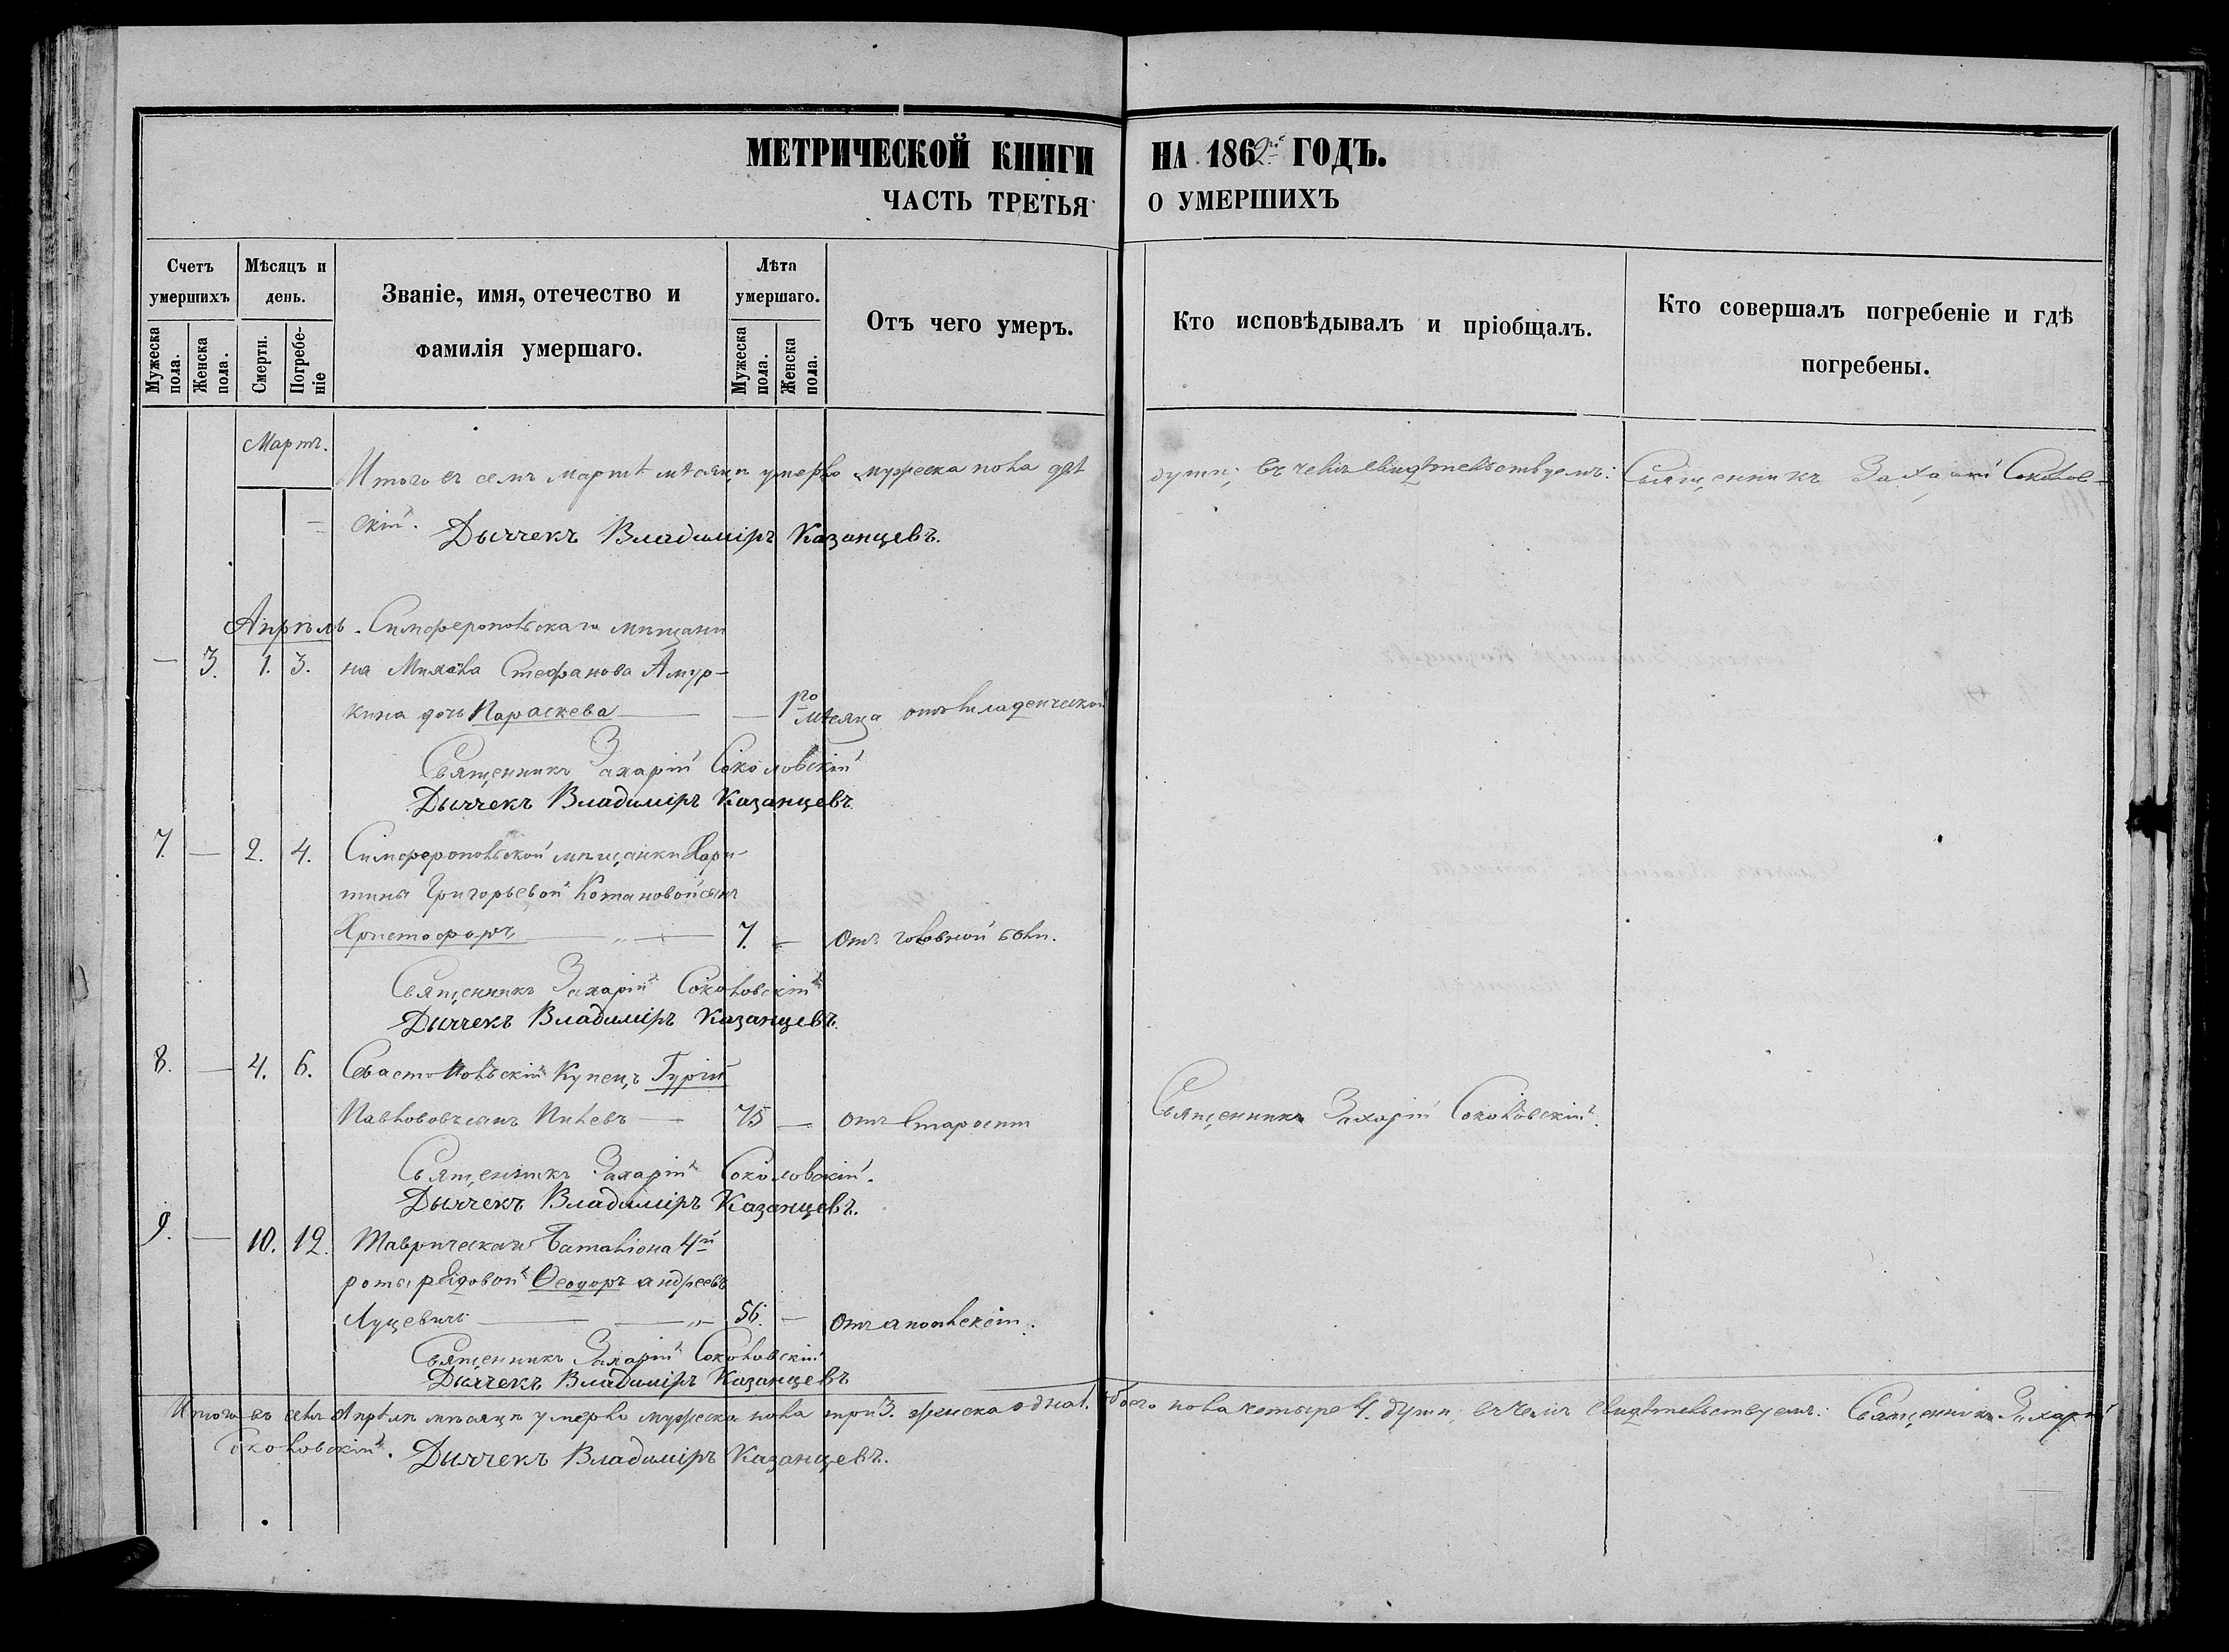 МЕТРИЧЕСКОЙ КНИГИ НА 1862й ГОДЪ.
ЧАСТЬ ТРЕТЬЯ О УМЕРШИХЪ
Счетъ умершихъ
Мужеска пола.
Женска пола.
Мѣсяцъ и день.
Смерти.
Погребеніе
Званіе, имя, отечество и фамилія умершаго.
Лѣта умершаго.
Мужеска пола.
Женска пола.
Отъ чего умеръ.
Кто исповѣдывалъ и пріобщалъ.
Кто совершалъ погребеніе и гдѣ погребены.
Мартъ.
Итого въ семъ мартѣ мѣсяцѣ умерло мужеска пола двѣ души; въ чемъ свидѣтельствуемъ: Священникъ Захарій Соколов-
скій. Дьячекъ Владиміръ Казанцевъ.
Апрѣль. Симферопольскаго мѣщани
— 3. 1. 3. на Михаила Стефанова Амур-
кина дочь Параскева — — 1го мѣсяца отъ младенческой
Священникъ Захарій Соколовскій
Дьячекъ Владиміръ Казанцевъ
7. — 2. 4. Симферопольской мѣщанки Хари-
тины Григорьевой Котановой сынъ
Христофоръ — „ — 7. — Отъ головной боли.
Священникъ Захарій Соколовскій
Дьячекъ Владиміръ Казанцевъ.
8. — 4. 6. Севастопольскій Купецъ Гурій
Павлововъ сынъ Пилевъ — 75 — отъ старости Священникъ Захарій Соколовскій.
Священникъ Захарій Соколовскій.
Дьячекъ Владиміръ Казанцевъ.
9. — 10. 12. Таврическаго Баталіона 4й
роты рядовой Ѳеодоръ андреевъ
Луцевичь — — „ — 56. — Отъ апоплексіи.
Священникъ Захарій Соколовскій
Дьячекъ Владиміръ Казанцевъ
Итого въ семъ Апрѣлѣ мѣсяцѣ умерло мужеска пола три 3. женска одна 1. обоего пола четыре 4. души, въ чемъ свидѣтельствуемъ: Священникъ Захарій
Соколовскій. Дьячекъ Владиміръ Казанцевъ.